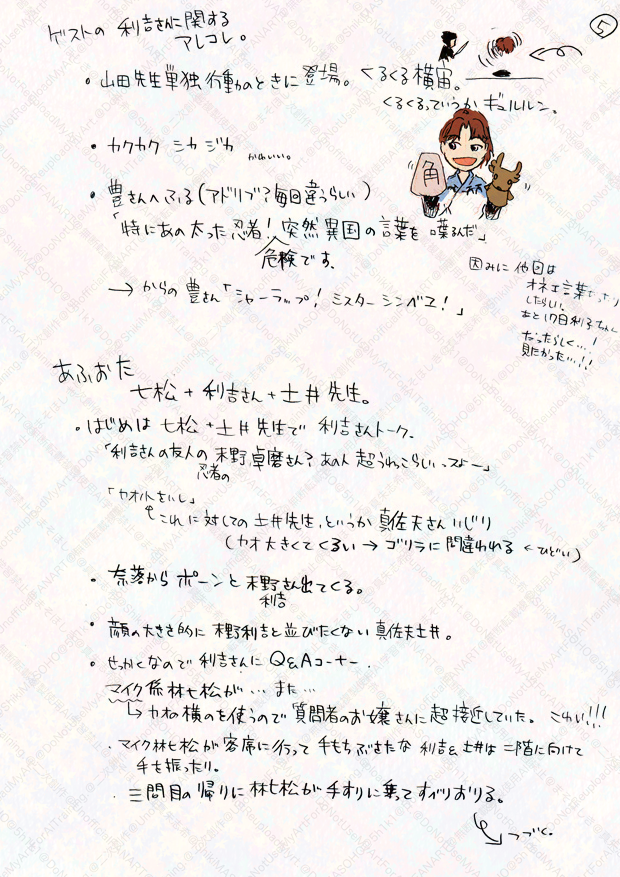 ⑤
ゲストの 利吉さんに関する
アレコレ。
・山田先生単独行動のときに登場。くるくる横宙。
くるくるっていうか ギュルルン。
・カクカク シカジカ かわいい。
角
・豊さんへふる(アドリブ?毎回違うらしい)
「特にあの太った忍者!突然異国の言葉を喋るんだ」
危険です。
→からの豊さん「シャーラップ!ミスターシンベヱ!」
因みに他回は
オネエ言葉
したらしい。
あと17日利子ちゃん
だったらしく…!
見たかった…!!
あふおた
七松+利吉さん+土井先生。
・はじめは七松+土井先生で 利吉さんトーク。
「利吉さんの友人の木野卓磨さん?あの人 超うれっこらしいっスよー」
忍者の
「カオ
これに対しての土井先生、というか真佐夫さんいじり
(カオ大きくてくるい→ゴリラに間違われる ←ひどい)
・奈落からポーンと木野さん出てくる。
利吉
・顔の大きさ的に木野利吉と並びたくない真佐夫土井。
・せっかくなので利吉さんにQ&Aコーナー。
マイク係林七松が…また…
↳カオの横のを使うので質問者のお嬢さんに超接近していた。こわい!!!
・マイク林七松が客席に行って手もちぶさたな利吉&土井は二階に向けて
手を振ったり。
・三問目の帰りに林七松が手すりに乗ってすべりおりる。
→つづく。